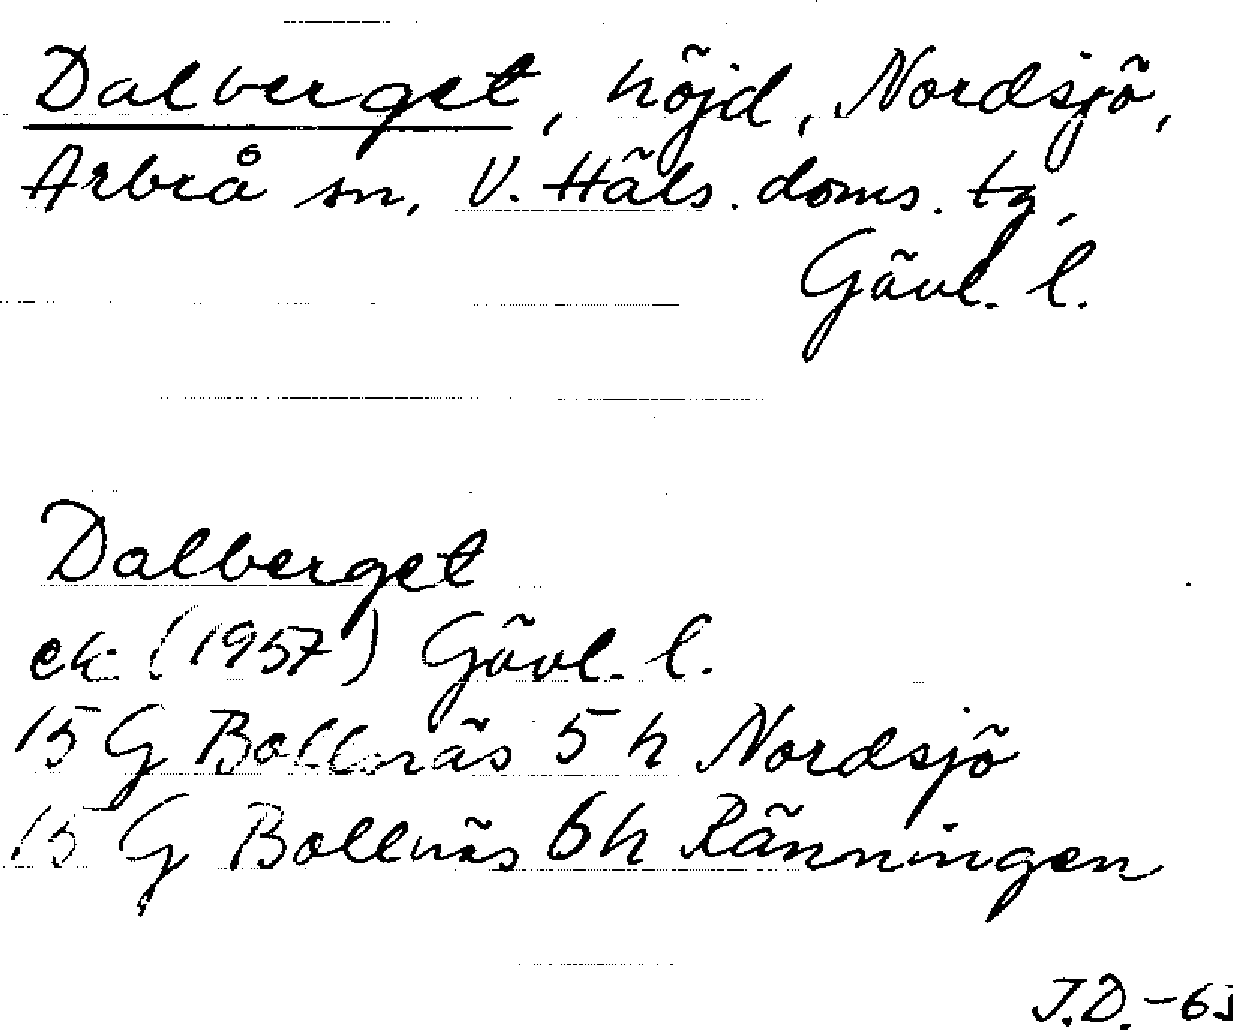 Dalberget, höjd, Nordsjö,
Arbrå sn, V. Häls. doms. tg,
Gävl. l.
Dalberget
ek. (1957) Gävl. l.
15 G Bollnäs 5 h Nordsjö
15 G Bollnäs 6 h Ränningen
J.D. -63